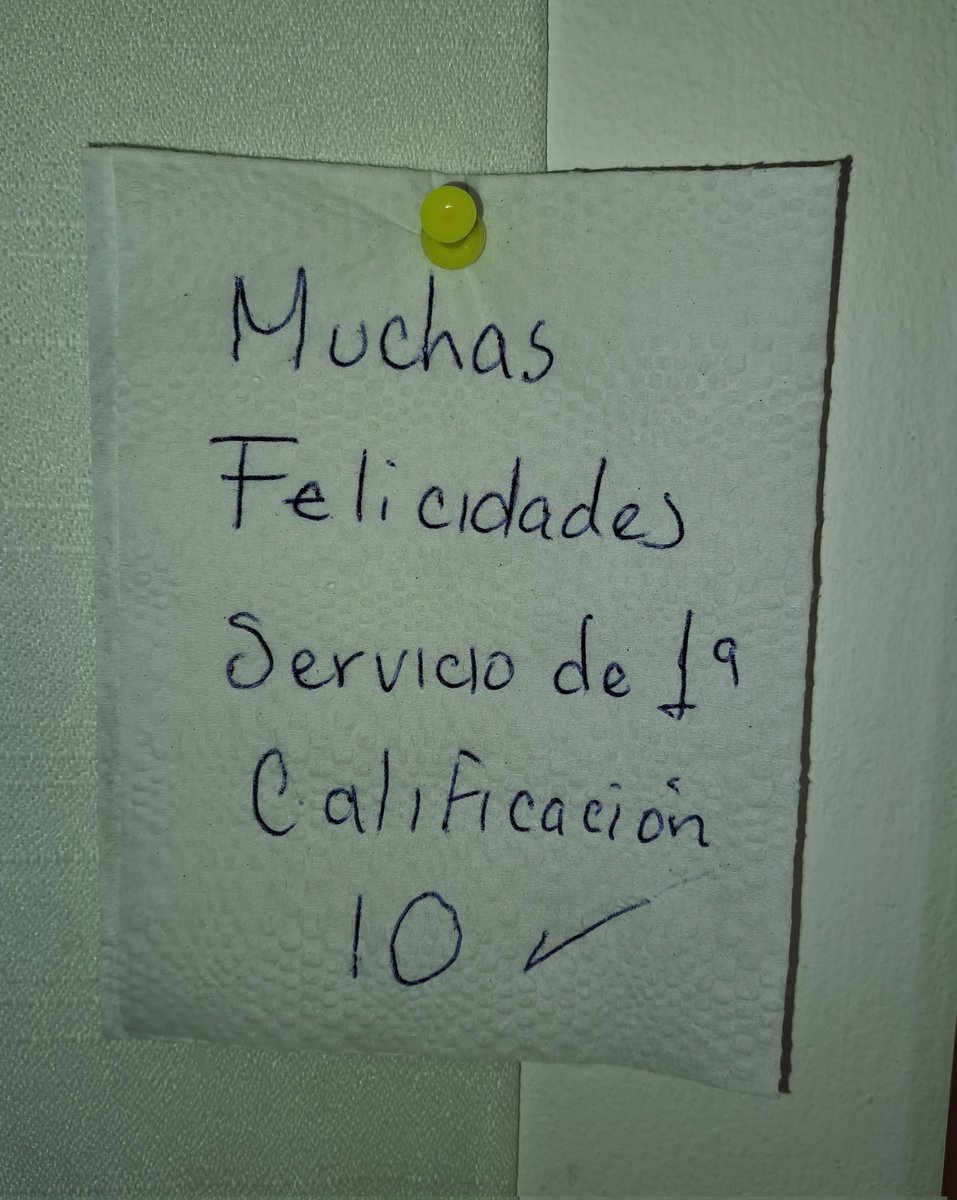 Muchas
Felicidades
Servicio de 1ª
Calificación
10 ✓